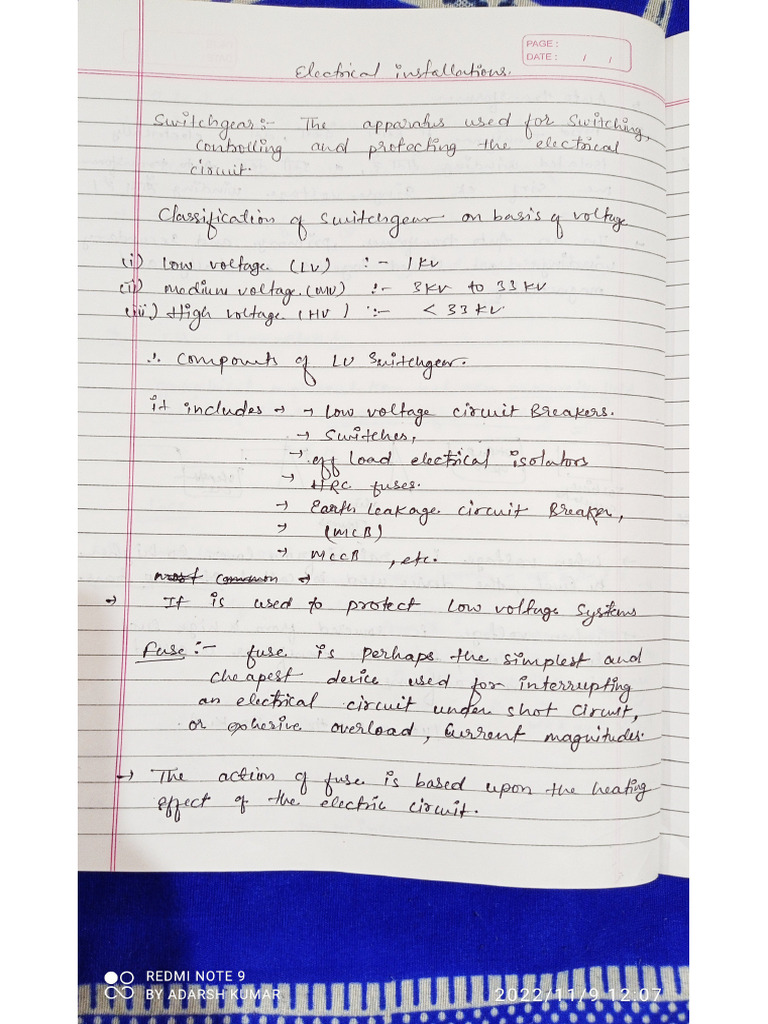 PAGE :
DATE : / /
Electrical installations.
Switchgear:- The apparatus used for switching,
controlling and protecting the electrical
circuit.
Classification of switchgear on basis of voltage
(i) low voltage (LV) :- 1KV
(ii) medium voltage (MV) :- 3KV to 33KV
(iii) High voltage (HV) :- < 33KV
∴ Compounts of LV Switchgear.
it includes → → Low voltage circuit Breakers.
→ Switches,
→ off Load electrical isolators
→ HRC fuses.
→ Earth Leakage Circuit Breaker,
→ (MCB)
→ MCCB , etc.
most common →
→ It is used to protect Low voltage Systems
Fuse:- fuse is perhaps the simplest and
cheapest device used for interrupting
an electrical circuit under shot circuit,
or overload, Current magnitudes.
→ The action of fuse is based upon the heating
effect of the electric circuit.
REDMI NOTE 9
BY ADARSH KUMAR
2022/11/9 12:07